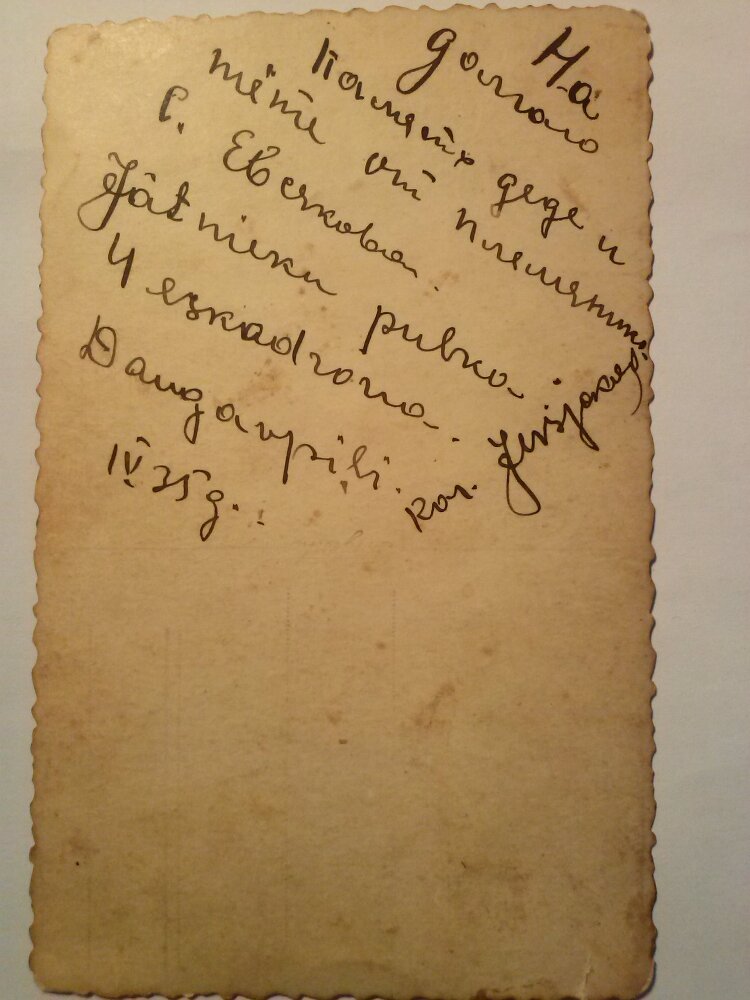 На
долгою
память деде и
тёте от племянника
С. Евсякова.
Jātnieku pulka
4 eskadrona.
Daugavpilī.
IV 35 g.
kar.